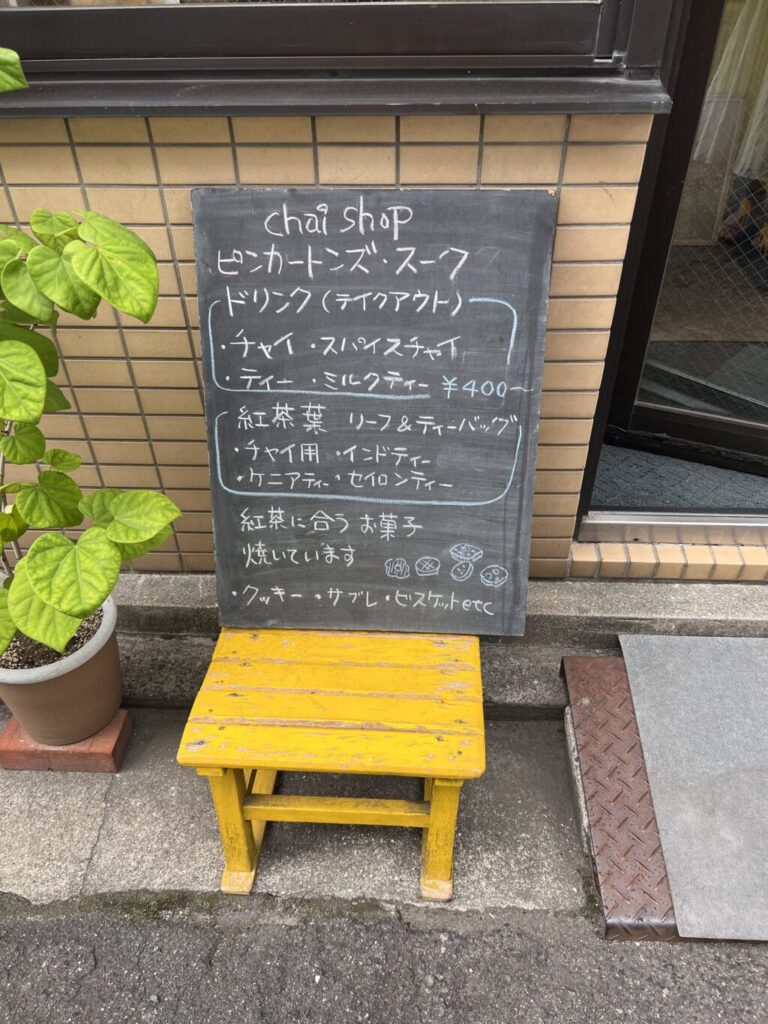 chai shop
ピンカートンズ・スーク
ドリンク(テイクアウト)
・チャイ ・スパイスチャイ
・ティー ・ミルクティー ¥400〜
紅茶葉 リーフ&ティーバッグ
・チャイ用 ・インドティー
・ケニアティー ・セイロンティー
紅茶に合う お菓子
焼いています
・クッキー ・サブレ ・ビスケットetc